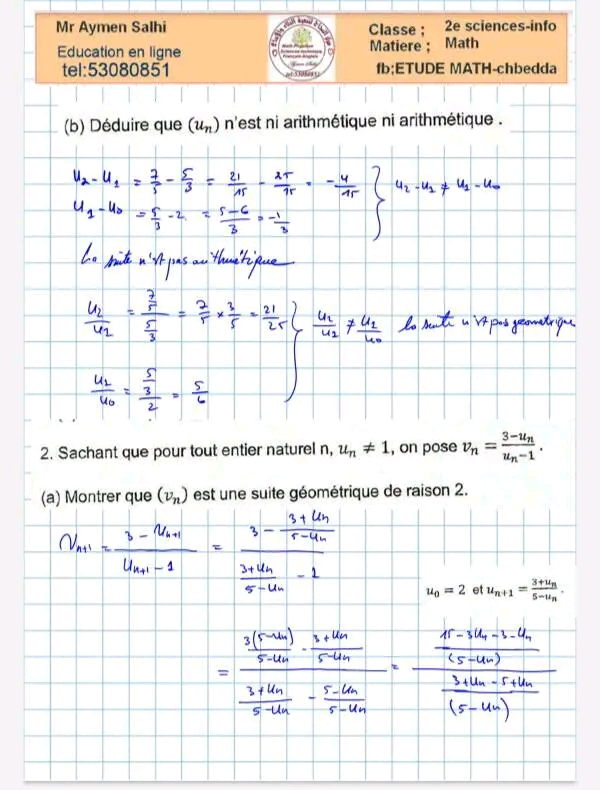 Mr Aymen Salhi
Education en ligne
tel:53080851
Classe ; 2e sciences-info
Matiere ; Math
fb:ETUDE MATH-chbedda
(b) Déduire que (uₙ) n'est ni arithmétique ni arithmétique .
u₂ - u₁ = 7/5 - 5/3 = 21/15 - 25/15 = -4/15 } u₂ - u₁ ≠ u₁ - u₀
u₁ - u₀ = 5/3 - 2 = (5-6)/3 = -1/3
La suite n'est pas arithmétique
u₂/u₁ = (7/5)/(5/3) = 7/5 × 3/5 = 21/25 } u₂/u₁ ≠ u₁/u₀ la suite n'est pas geometrique
u₁/u₀ = (5/3)/2 = 5/6
2. Sachant que pour tout entier naturel n, uₙ ≠ 1, on pose vₙ = (3-uₙ)/(uₙ-1) .
(a) Montrer que (vₙ) est une suite géométrique de raison 2.
Vₙ₊₁ = (3 - Uₙ₊₁)/(Uₙ₊₁ - 1) = (3 - (3+Uₙ)/(5-Uₙ))/((3+Uₙ)/(5-Uₙ) - 1)
u₀ = 2 et uₙ₊₁ = (3+uₙ)/(5-uₙ) .
= (3(5-Uₙ)/(5-Uₙ) - (3+Uₙ)/(5-Uₙ))/((3+Uₙ)/(5-Uₙ) - (5-Uₙ)/(5-Uₙ)) = ((15-3Uₙ-3-Uₙ)/(5-Uₙ))/((3+Uₙ-5+Uₙ)/(5-Uₙ))